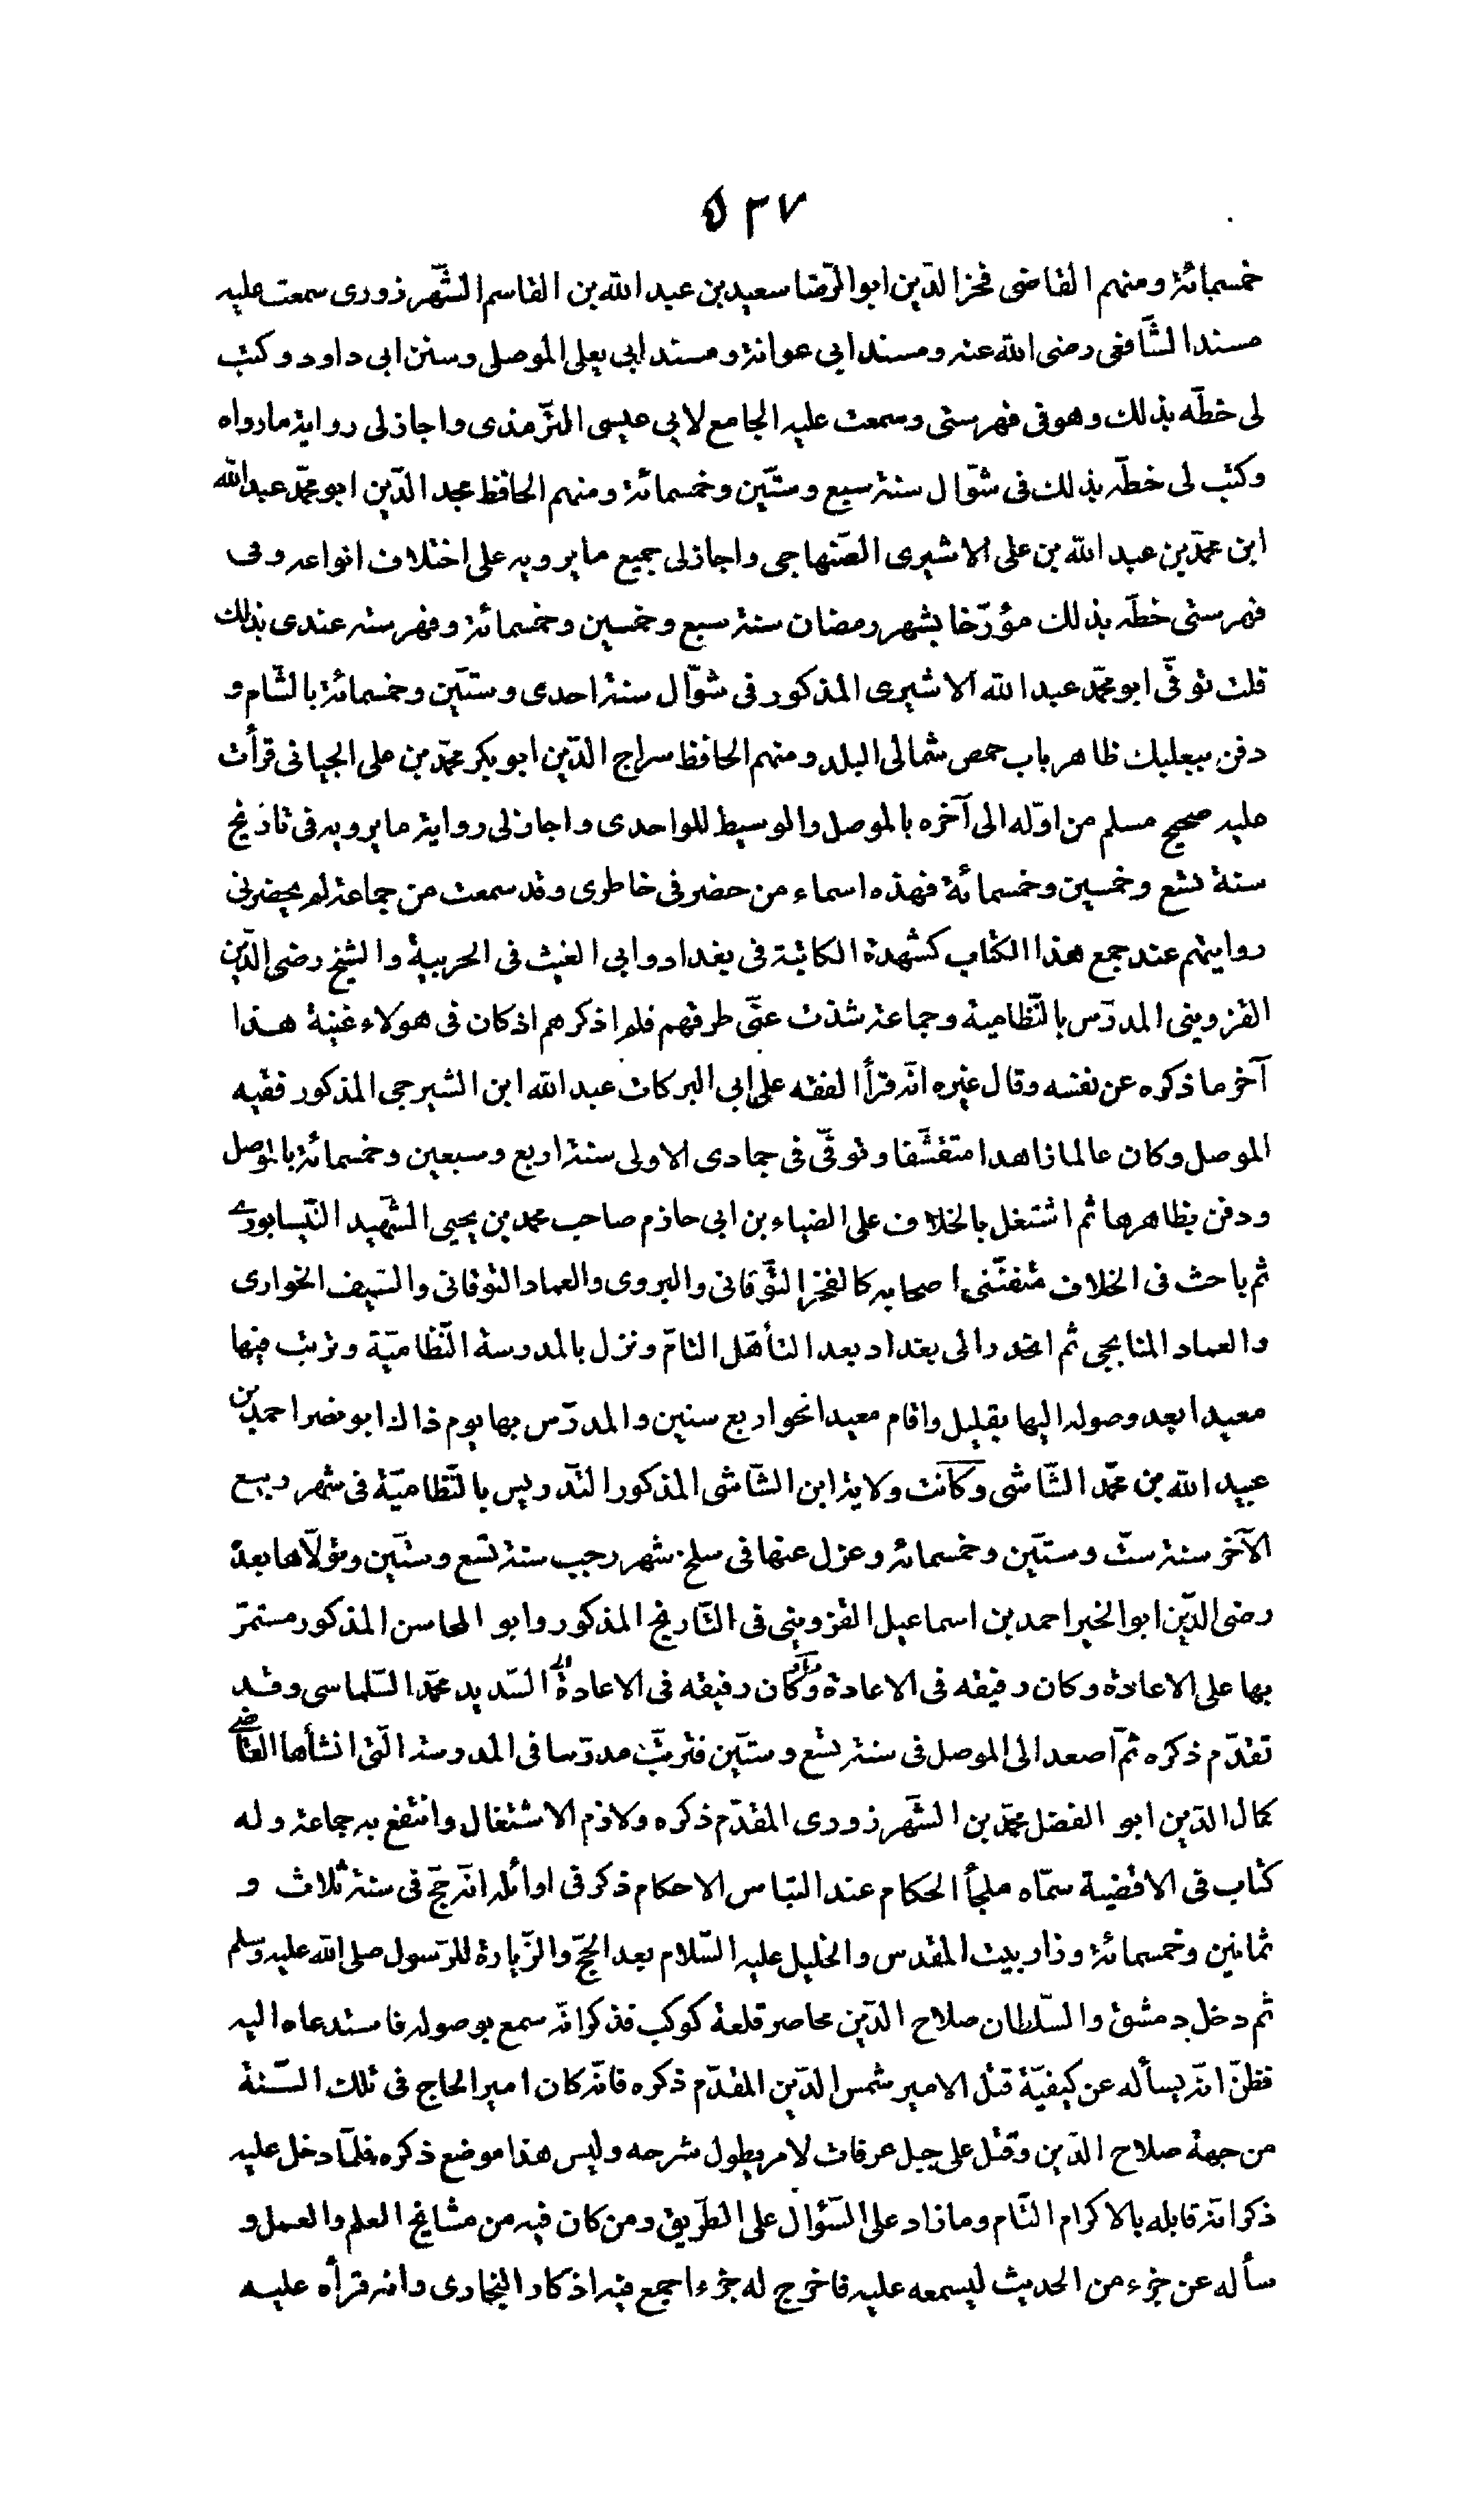 ٥٣٧
خمسمائة ومنهم القاضى فخر الدّين ابو الرّضا سعيد بن عبد الله بن القاسم الشّهرزورى سمعت عليه
مسند الشّافعى رضى الله عنه ومسند ابى عوانة ومسند ابى يعلى الموصلى وسنن ابى داود وكتب
لى خطّه بذلك وهو فى فهرستى وسمعت عليه الجامع لابى عيسى التّرمذى واجاز لى رواية ما رواه
وكتب لى خطّه بذلك فى شوّال سنة سبع وستّين وخمسمائة ومنهم الحافظ مجد الدّين ابو محمّد عبد الله
ابن محمّد بن عبد الله بن على الاشيرى الصّنهاجى واجاز لى جميع ما يرويه على اختلاف انواعه وفى
فهرستى خطّه بذلك مؤرّخا بشهر رمضان سنة سبع وخمسين وخمسمائة وفهرسته عندى بذلك
قلت توفّى ابو محمّد عبد الله الاشيرى المذكور فى شوّال سنة احدى وستّين وخمسمائة بالشّام و
دفن ببعلبك ظاهر باب حمص شمالى البلد ومنهم الحافظ سراج الدّين ابو بكر محمّد بن على الجيانى قرأت
عليه صحيح مسلم من اوّله الى آخره بالموصل والوسيط للواحدى واجاز لى رواية ما يرويه فى تاريخ
سنة تسع وخمسين وخمسمائة فهذه اسماء من حضر فى خاطرى وقد سمعت من جماعة لم يحضرنى
روايتهم عند جمع هذا الكتاب كشهدة الكاتبة فى بغداد وابى الغيث فى الحربية والشيخ رضى الدّين
القزوينى المدرّس بالنّظامية وجماعة شذت عنّى طرقهم فلم اذكرهم اذ كان فى هولاء غنية هذا
آخر ما ذكره عن نفسه وقال غيره انّه قرأ الفقه على ابى البركات عبد الله ابن الشيرجى المذكور فقيه
الموصل وكان عالما زاهدا متقشّفا وتوفّى فى جمادى الاولى سنة اربع وسبعين وخمسمائة بالموصل
ودفن بظاهرها ثم اشتغل بالخلاف على الضياء بن ابى حازم صاحب محمد بن يحيى الشّهيد النّيسابورى
ثم باحث فى الخلاف متفنّنى اصحابه كالفخر النّوقانى والبروى والعماد النوقانى والسّيف الخوارى
والعماد الميانجى ثم انحدر الى بغداد بعد التأهّل التامّ ونزل بالمدرسة النّظاميّة وترتب فيها
معيدا بعد وصوله اليها بقليل واقام معيدا نحو اربع سنين والمدرّس بها يوم ذاك ابو نصر احمد بن
عبيد الله بن محمّد الشّاشى وكانت ولاية ابن الشّاشى المذكور التّدريس بالنّظاميّة فى شهر ربيع
الآخر سنة ستّ وستّين وخمسمائه وعزل عنها فى سلخ شهر رجب سنة تسع وستّين وتولّاها بعده
رضى الدّين ابو الخير احمد بن اسماعيل القزوينى فى التّاريخ المذكور وابو المحاسن المذكور مستمرّ
بها على الاعادة وكان رفيقه فى الاعادة وكان رفيقه فى الاعادة السّديد محمّد السّلماسى وقد
تقدّم ذكره ثمّ اصعد الى الموصل فى سنة تسع وستّين فترتّب مدرّسا فى المدرسة الّتى انشأها القاضى
كمال الدّين ابو الفضل محمّد بن الشّهرزورى المقدّم ذكره ولازم الاشتغال وانتفع به جماعة وله
كتاب فى الاقضية سمّاه ملجأ الحكام عند التباس الاحكام ذكر فى اوائله انّه حجّ فى سنة ثلاث و
ثمانين وخمسمائة وزار بيت المقدس والخليل عليه السّلام بعد الحجّ والزّيارة للرّسول صلى الله عليه وسلم
ثم دخل دمشق والسّلطان صلاح الدّين محاصر قلعة كوكب فذكر انّه سمع بوصوله فاستدعاه اليه
فظنّ انّه يسأله عن كيفيّة قتل الامير شمس الدّين المقدّم ذكره فانّه كان امير الحاج فى تلك السّنة
من جهة صلاح الدّين وقتل على جبل عرفات لامر يطول شرحه وليس هذا موضع ذكره فلمّا دخل عليه
ذكر انّه قابله بالاكرام التّام وما زاد على السّؤال على الطّريق ومن كان فيه من مشايخ العلم والعمل و
سأله عن جزء من الحديث ليسمعه عليه فاخرج له جزءا جمع فيه اذكار البخارى وانه قرأه عليه